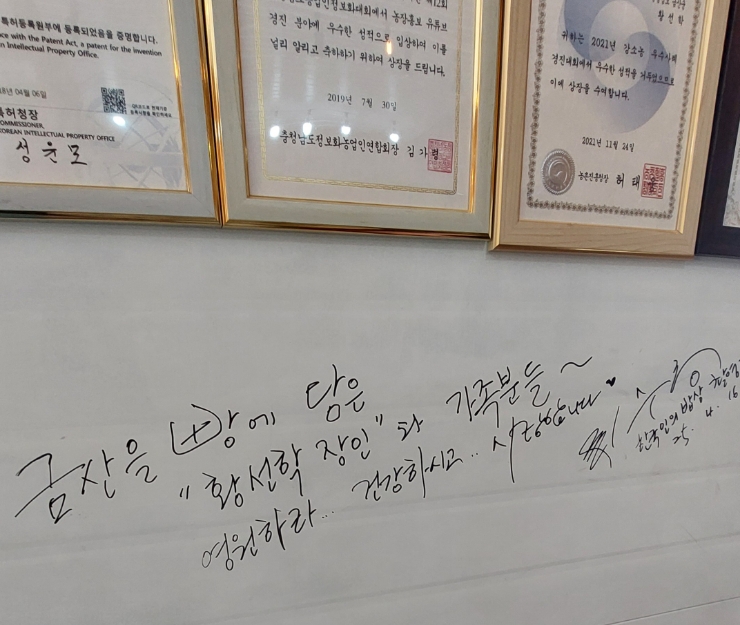 특허등록원부에 등록되었음을 증명합니다.
ce with the Patent Act, a patent for the invention
n Intellectual Property Office.
8년 04월 06일
특허청장
COMMISSIONER,
KOREAN INTELLECTUAL PROPERTY OFFICE
성윤모
농업인정보화대회에서 농장홍보 유튜브
경진 분야에 우수한 성적으로 입상하여 이를
널리 알리고 축하하기 위하여 상장을 드립니다.
2019년 7월 30일
충청남도정보화농업인연합회장 김가령
황선학
귀하는 2021년 강소농 우수사례
경진대회에서 우수한 성적을 거두었으므로
이에 상장을 수여합니다.
2021년 11월 24일
농촌진흥청장 허태웅
금산을 땅에 담은
"황선학 장인"과 가족분들~
영원하라... 건강하시고.. 사랑합니다♥
한국인의 밥상 촬영
25. 4. 16